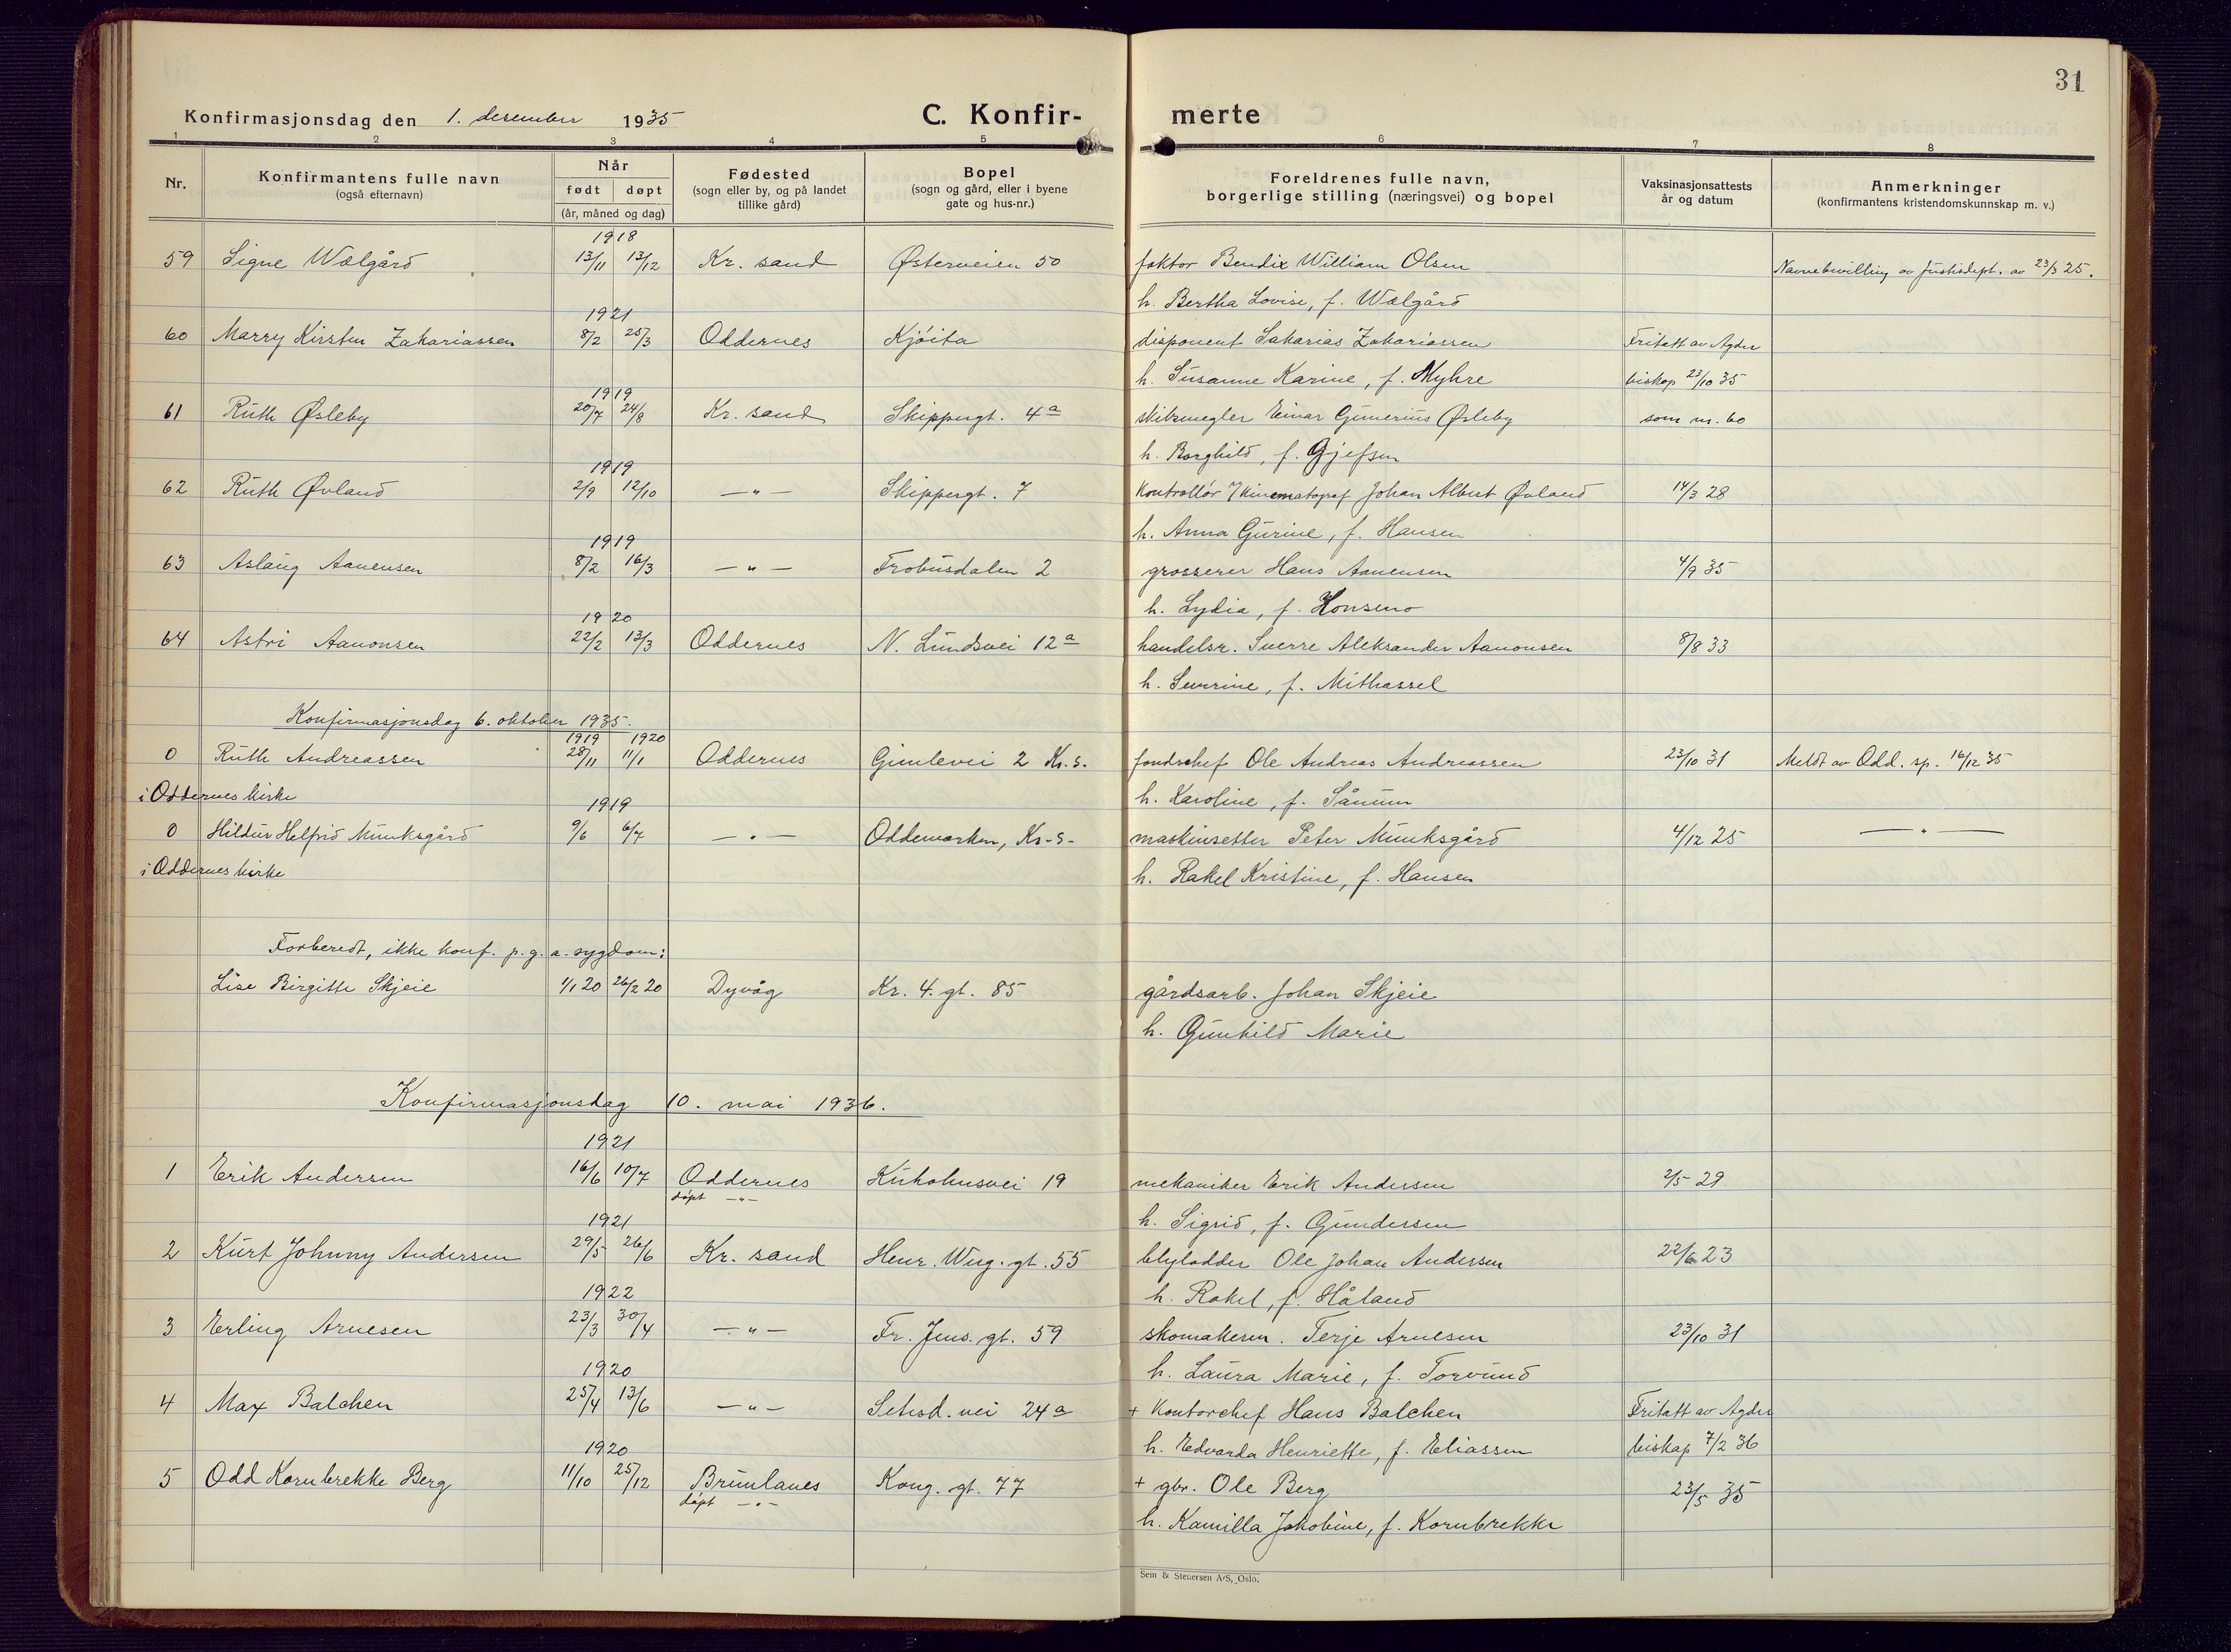 31
Konfirmasjonsdag den 1. desember 1935 C. Konfir- merte
1 2 3 4 5 6 7 8
Nr. Konfirmantens fulle navn (også efternavn) Når født døpt (år, måned og dag) Fødested (sogn eller by, og på landet tillike gård) Bopel (sogn og gård, eller i byene gate og hus-nr.) Foreldrenes fulle navn, borgerlige stilling (næringsvei) og bopel Vaksinasjonsattests år og datum Anmerkninger (konfirmantens kristendomskunnskap m. v.)
1918
59 Signe Wælgård 13/11 13/12 Kr. sand Østerveien 50 faktor Bendix William Olsen Navnebevilling av Justisdept. av 23/3 25.
h. Bertha Lovise, f. Wælgård
1921
60 Marry Kirsten Zakariassen 8/2 25/3 Oddernes Kjøita disponent Sakarias Zakariassen Fritatt av Agder
h. Susanne Karine, f. Myhre biskop 23/10 35
1919
61 Ruth Øsleby 20/7 24/8 Kr. sand Skippergt. 4a skibsmegler Einar Gunerius Øsleby som nr. 60
h. Borghild, f. Gjefsen
1919
62 Ruth Øvland 2/9 12/10 — " — Skippergt. 7 Kontrollør v/ kinematograf Johan Albert Øvland 14/3 28
h. Anna Gurine, f. Hansen
1919
63 Aslaug Aanensen 8/2 16/3 — " — Frobusdalen 2 grosserer Hans Aanensen 4/9 35
h. Lydia, f. Honseno
1920
64 Astri Aanonsen 22/2 13/3 Oddernes N. Lundsvei 12a handelsr. Sverre Aleksander Aanonsen 8/8 33
h. Severine, f. Mithassel
Konfirmasjonsdag 6. oktober 1935.
1919 1920
0 Ruth Andreassen 28/11 11/1 Oddernes Gimlevei 2 Kr.s. fondschef Ole Andreas Andreassen 23/10 31 Meldt av Odd. sp. 16/12 35
i Oddernes kirke h. Karoline, f. Sånum
1919
0 Hildur Helfrid Munksgård 9/6 6/7 — " — Oddemarken, Kr-s- maskinsetter Peter Munksgård 4/12 25 — " —
i Oddernes kirke h. Rakel Kristine, f. Hansen
Forberedt, ikke konf. p. g. a. sygdom:
Lise Birgitte Skjeie 1/1 20 26/2 20 Dyvåg Kr. 4. gt. 85 gårdsarb. Johan Skjeie
h. Gunhild Marie
Konfirmasjonsdag 10. mai 1936.
1921
1 Erik Andersen 16/6 10/7 Oddernes Kuholmsvei 19 mekaniker Erik Andersen 2/5 29
døpt — " — h. Sigrid, f. Gundersen
1921
2 Kurt Johnny Andersen 29/5 26/6 Kr. sand Henr. Werg. gt. 55 blylodder Ole Johan Andersen 22/6 23
h. Rakel, f. Håland
1922
3 Erling Arnesen 23/3 30/4 — " — Fr. Jens. gt. 59 skomakersv. Terje Arnesen 23/10 31
h. Laura Marie, f. Torvund
1920
4 Max Balchen 25/4 13/6 — " — Setesd. vei 24a + Kontorchef Hans Balchen Fritatt av Agder
h. Edvarda Henriette, f. Eliassen biskop 7/2 36
1920
5 Odd Kornbrekke Berg 11/10 25/12 Brunlanes Kong. gt. 77 + gbr. Ole Berg 23/5 35
døpt — " — h. Kamilla Jakobine, f. Kornbrekke
Sem & Stenersen A/S, Oslo.